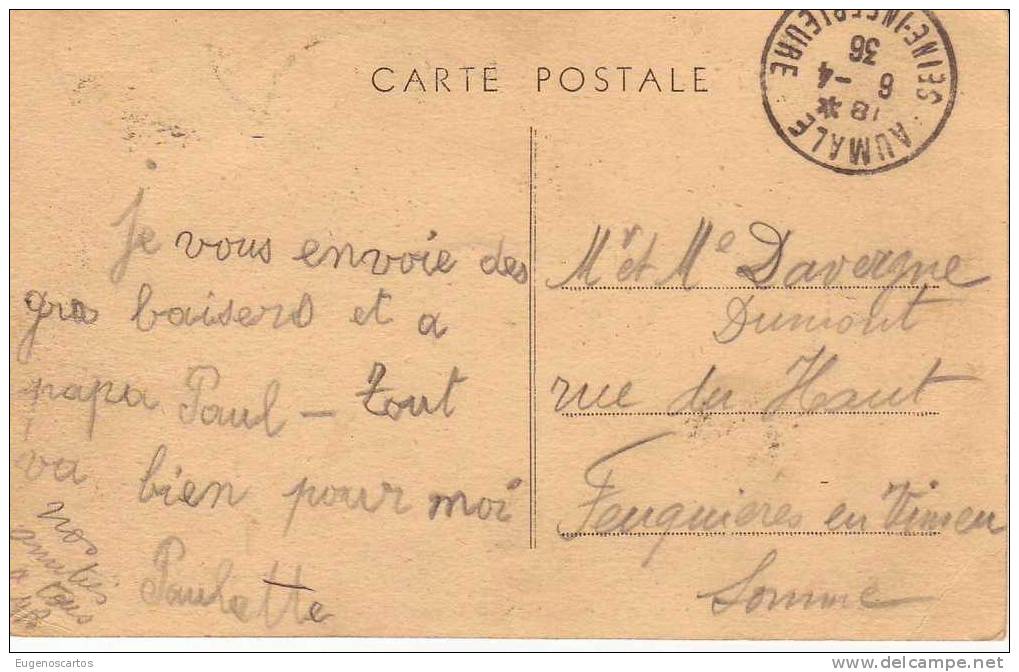 CARTE POSTALE
AUMALE
SEINE-INFERIEURE
18 *
6 -4
36
Je vous envoie des
gros baisers et a
papa Paul – tout
va bien pour moi
Paulette
nos
amitiés
a tous
Mr et Me Davergne
Dumont
rue du Haut
Feuquières en Vimeu
Somme
Eugenoscartos
www.delcampe.net